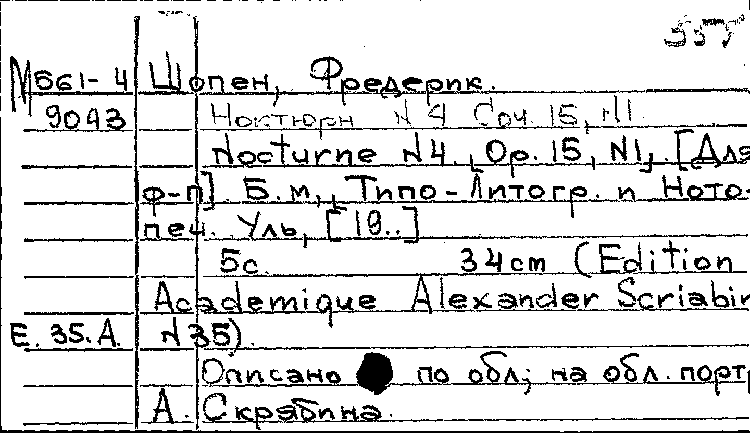 557
М561-4 Шопен, Фредерик.
9043 Ноктюрн N 4 Соч. 15, N1.
Nocturne N4., Op. 15, N1, [Для
ф-п]. Б.м., Типо-Литогр. и Ното-
печ. Уль, [19..]
5с. 34cm (Edition
Academique Alexander Scriabin
E. 35.A. N35).
Описано по обл; на обл. портр
А. Скрябина.